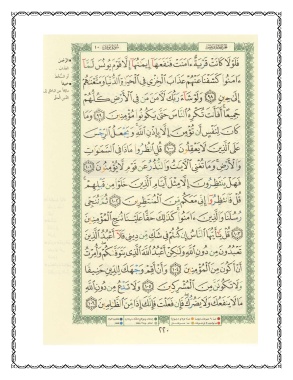 فَلَوْلَا كَانَتْ قَرْيَةٌ ءَامَنَتْ فَنَفَعَهَآ إِيمَٰنُهَآ إِلَّا قَوْمَ يُونُسَ لَمَّآ
ءَامَنُوا۟ كَشَفْنَا عَنْهُمْ عَذَابَ ٱلْخِزْىِ فِى ٱلْحَيَوٰةِ ٱلدُّنْيَا وَمَتَّعْنَٰهُمْ
إِلَىٰ حِينٍ ٩٨ وَلَوْ شَآءَ رَبُّكَ لَءَامَنَ مَن فِى ٱلْأَرْضِ كُلُّهُمْ
جَمِيعًا أَفَأَنتَ تُكْرِهُ ٱلنَّاسَ حَتَّىٰ يَكُونُوا۟ مُؤْمِنِينَ ٩٩ وَمَا
كَانَ لِنَفْسٍ أَن تُؤْمِنَ إِلَّا بِإِذْنِ ٱللَّهِ وَيَجْعَلُ ٱلرِّجْسَ
عَلَى ٱلَّذِينَ لَا يَعْقِلُونَ ١٠٠ قُلِ ٱنظُرُوا۟ مَاذَا فِى ٱلسَّمَٰوَٰتِ
وَٱلْأَرْضِ وَمَا تُغْنِى ٱلْءَايَٰتُ وَٱلنُّذُرُ عَن قَوْمٍ لَّا يُؤْمِنُونَ ١٠١
فَهَلْ يَنتَظِرُونَ إِلَّا مِثْلَ أَيَّامِ ٱلَّذِينَ خَلَوْا۟ مِن قَبْلِهِمْ
قُلْ فَٱنتَظِرُوٓا۟ إِنِّى مَعَكُم مِّنَ ٱلْمُنتَظِرِينَ ١٠٢ ثُمَّ نُنَجِّى
رُسُلَنَا وَٱلَّذِينَ ءَامَنُوا۟ كَذَٰلِكَ حَقًّا عَلَيْنَا نُنجِ ٱلْمُؤْمِنِينَ
١٠٣ قُلْ يَٰٓأَيُّهَا ٱلنَّاسُ إِن كُنتُمْ فِى شَكٍّ مِّن دِينِى فَلَآ أَعْبُدُ ٱلَّذِينَ
تَعْبُدُونَ مِن دُونِ ٱللَّهِ وَلَٰكِنْ أَعْبُدُ ٱللَّهَ ٱلَّذِى يَتَوَفَّىٰكُمْ وَأُمِرْتُ
أَنْ أَكُونَ مِنَ ٱلْمُؤْمِنِينَ ١٠٤ وَأَنْ أَقِمْ وَجْهَكَ لِلدِّينِ حَنِيفًا
وَلَا تَكُونَنَّ مِنَ ٱلْمُشْرِكِينَ ١٠٥ وَلَا تَدْعُ مِن دُونِ ٱللَّهِ
مَا لَا يَنفَعُكَ وَلَا يَضُرُّكَ فَإِن فَعَلْتَ فَإِنَّكَ إِذًا مِّنَ ٱلظَّٰلِمِينَ ١٠٦
٢٢٠